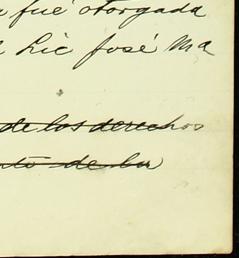 fué otorgada
Lic José Ma
de los derechos
de la